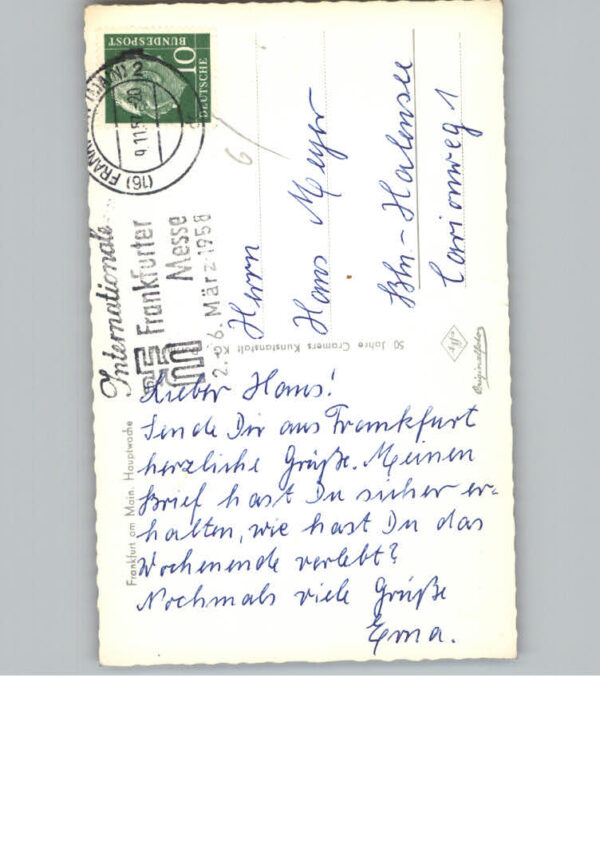 DEUTSCHE
BUNDESPOST
10
(16) FRANKFURT (MAIN) 2
9.11.57-20
Internationale
Frankfurter
Messe
2.-6. März 1958
6
Herrn
Hans Meyer
Bln-Halensee
Carionweg 1
50 Jahre Cramers Kunstanstalt
Originalfoto
Frankfurt am Main. Hauptwache
Lieber Hans!
Sende Dir aus Frankfurt
herzliche Grüße. Meinen
Brief hast Du sicher er-
halten, wie hast Du das
Wochenende verlebt?
Nochmals viele Grüße
Erna.